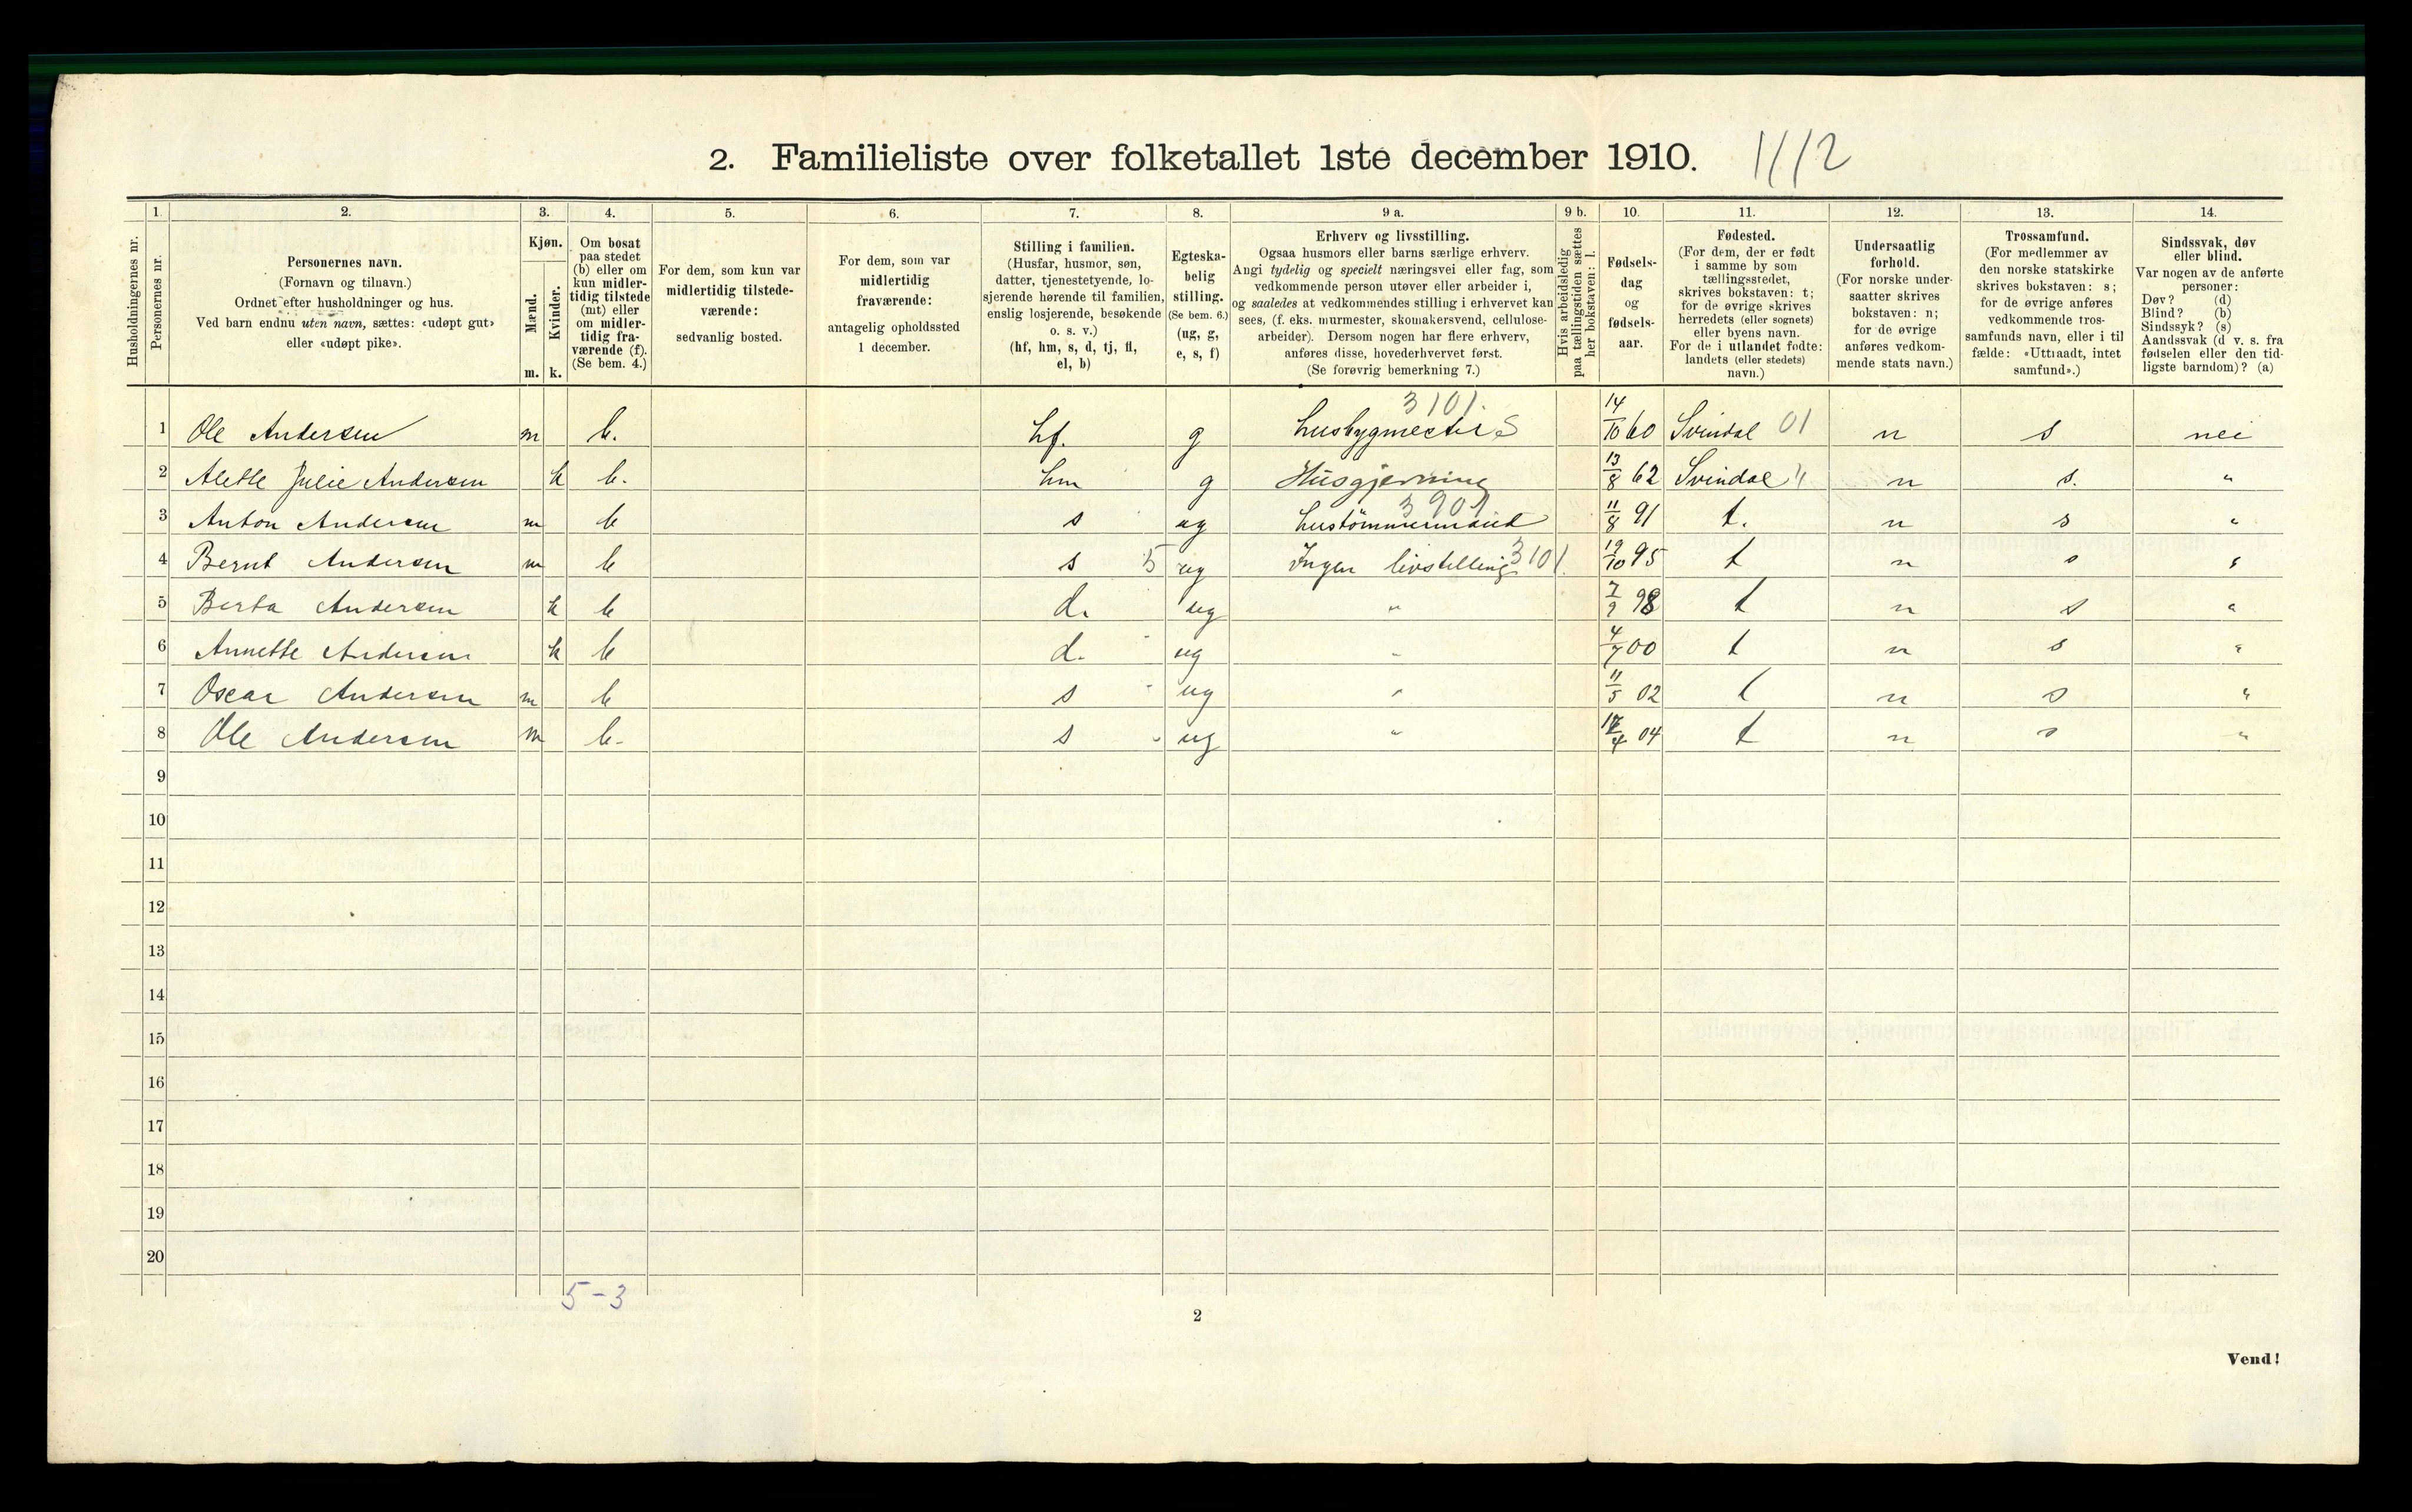 2. Familieliste over folketallet 1ste december 1910. 1//2
1. 2. 3. 4. 5. 6. 7. 8. 9 a. 9 b. 10. 11. 12. 13. 14.
Husholdningernes nr.
Personernes nr.
Personernes navn.
(Fornavn og tilnavn.)
Ordnet efter husholdninger og hus.
Ved barn endnu uten navn, sættes: «udøpt gut»
eller «udøpt pike».
Kjøn.
Mænd.
Kvinder.
m. k.
Om bosat
paa stedet
(b) eller om
kun midler-
tidig tilstede
(mt) eller
om midler-
tidig fra-
værende (f).
(Se bem. 4.)
For dem, som kun var
midlertidig tilstede-
værende:
sedvanlig bosted.
For dem, som var
midlertidig
fraværende:
antagelig opholdssted
1 december.
Stilling i familien.
(Husfar, husmor, søn,
datter, tjenestetyende, lo-
sjerende hørende til familien,
enslig losjerende, besøkende
o. s. v.)
(hf, hm, s, d, tj, fl,
el, b)
Egteska-
belig
stilling.
(Se bem. 6.)
(ug, g,
e, s, f)
Erhverv og livsstilling.
Ogsaa husmors eller barns særlige erhverv.
Angi tydelig og specielt næringsvei eller fag, som
vedkommende person utøver eller arbeider i,
og saaledes at vedkommendes stilling i erhvervet kan
sees, (f. eks. murmester, skomakersvend, cellulose-
arbeider). Dersom nogen har flere erhverv,
anføres disse, hovederhvervet først.
(Se forøvrig bemerkning 7.)
Hvis arbeidsledig
paa tællingstiden sættes
her bokstaven: l.
Fødsels-
dag
og
fødsels-
aar.
Fødested.
(For dem, der er født
i samme by som
tællingsstedet,
skrives bokstaven: t;
for de øvrige skrives
herredets (eller sognets)
eller byens navn.
For de i utlandet fødte:
landets (eller stedets)
navn.)
Undersaatlig
forhold.
(For norske under-
saatter skrives
bokstaven: n;
for de øvrige
anføres vedkom-
mende stats navn.)
Trossamfund.
(For medlemmer av
den norske statskirke
skrives bokstaven: s;
for de øvrige anføres
vedkommende tros-
samfunds navn, eller i til
fælde: «Uttraadt, intet
samfund».)
Sindssvak, døv
eller blind.
Var nogen av de anførte
personer:
Døv? (d)
Blind? (b)
Sindssyk? (s)
Aandssvak (d v. s. fra
fødselen eller den tid-
ligste barndom)? (a)
3101.
1 Ole Andersen m b. hf. g husbygmester S 14/10 60 Svindal 01 n s nei
2 Alette Julie Andersen k b. hm g Husgjerning 13/8 62 Svindal " n s. "
3901
3 Anton Andersen m b s ug hustömmermand 11/8 91 t. n s "
4 Bernt Andersen m b s 5 ug Ingen livstelling 3101. 19/10 95 t n s "
5 Berta Andersen k b d. ug " 7/9 98 t n s "
6 Annette Andersen k b d. ug " 4/7 00 t n s "
7 Oscar Andersen m b s ug " 11/5 02 t n s "
8 Ole Andersen m b. s ug " /4 04 t n s "
9
10
11
12
13
14
15
16
17
18
19
20
5-3
2
Vend!